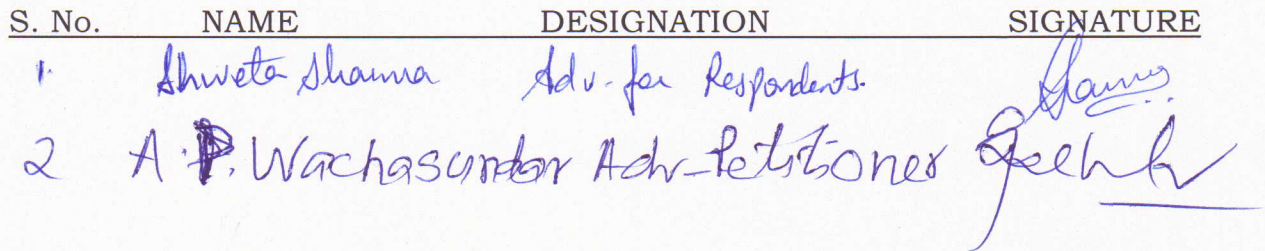 S. No. NAME DESIGNATION SIGNATURE
1. Shweta Sharma Adv. for Respondents.
2 A.P. Wachasundar Adv-Petitioner